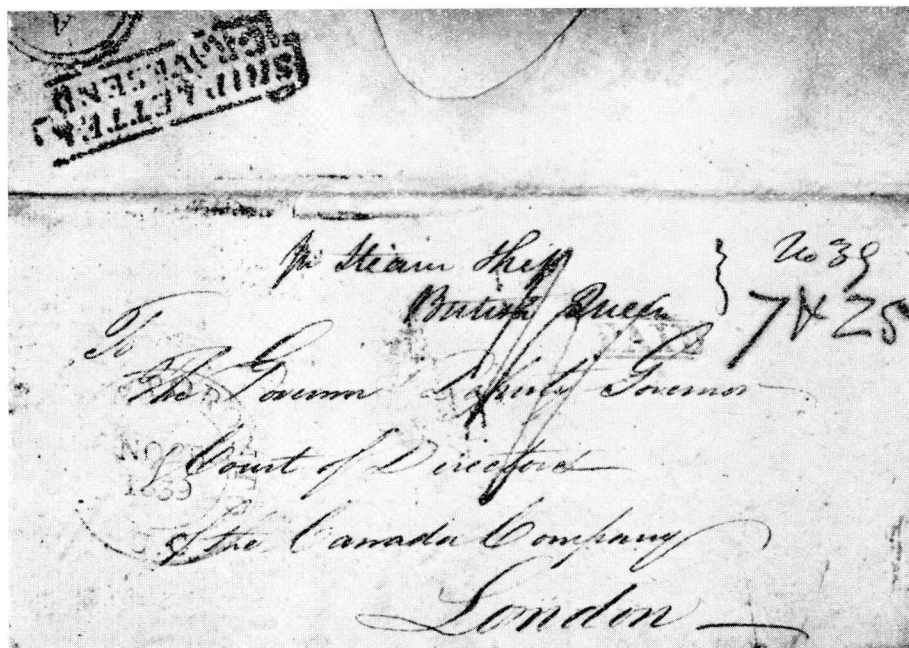 SHIP LETTER
GRAVESEND
pr Steam Ship
British Queen
No 39
7 N 25
To
The Governor Deputy Governor
& Court of Directors
of the Canada Company
London